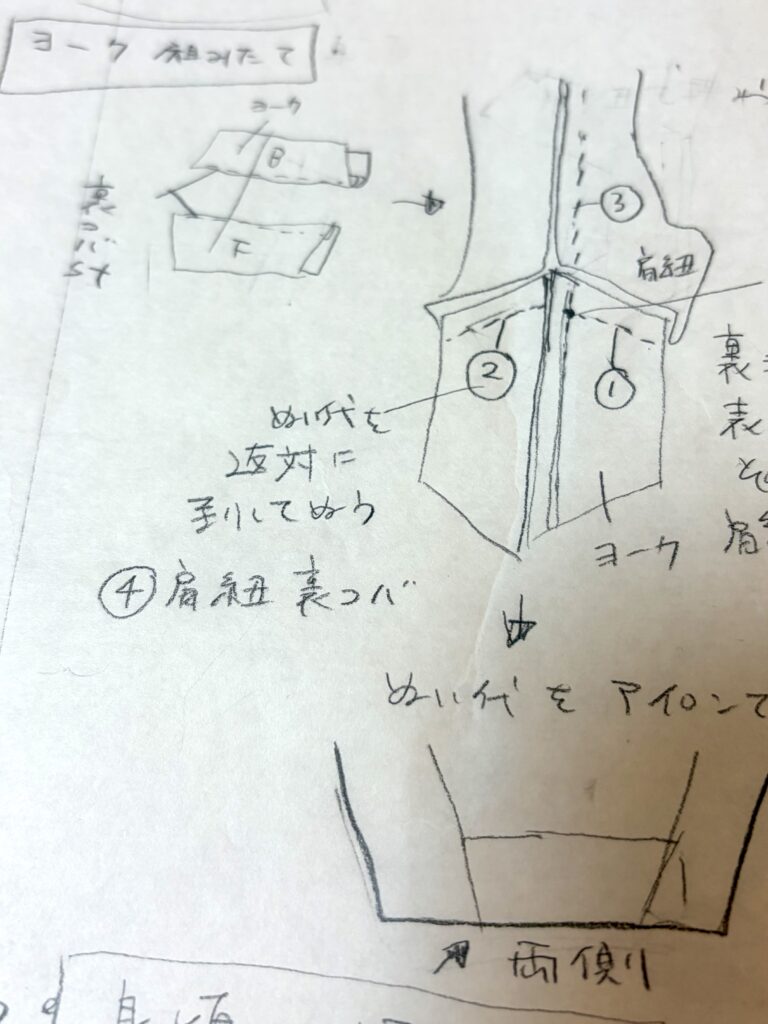 ヨーク 組みたて
ヨーク
B
F
裏
コバ
③
肩紐
②
①
裏
表
肩
ぬい代を
反対に
ぬう
ヨーク
④ 肩紐 裏コバ
ぬい代を アイロンで
両側
身頃